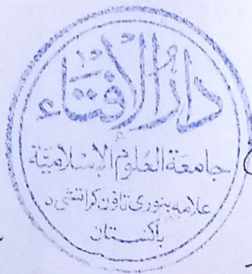 دار الإفتاء
جامعة العلوم الإسلامية
علامه بنوري تاؤن كراتشي ٥
باكستان